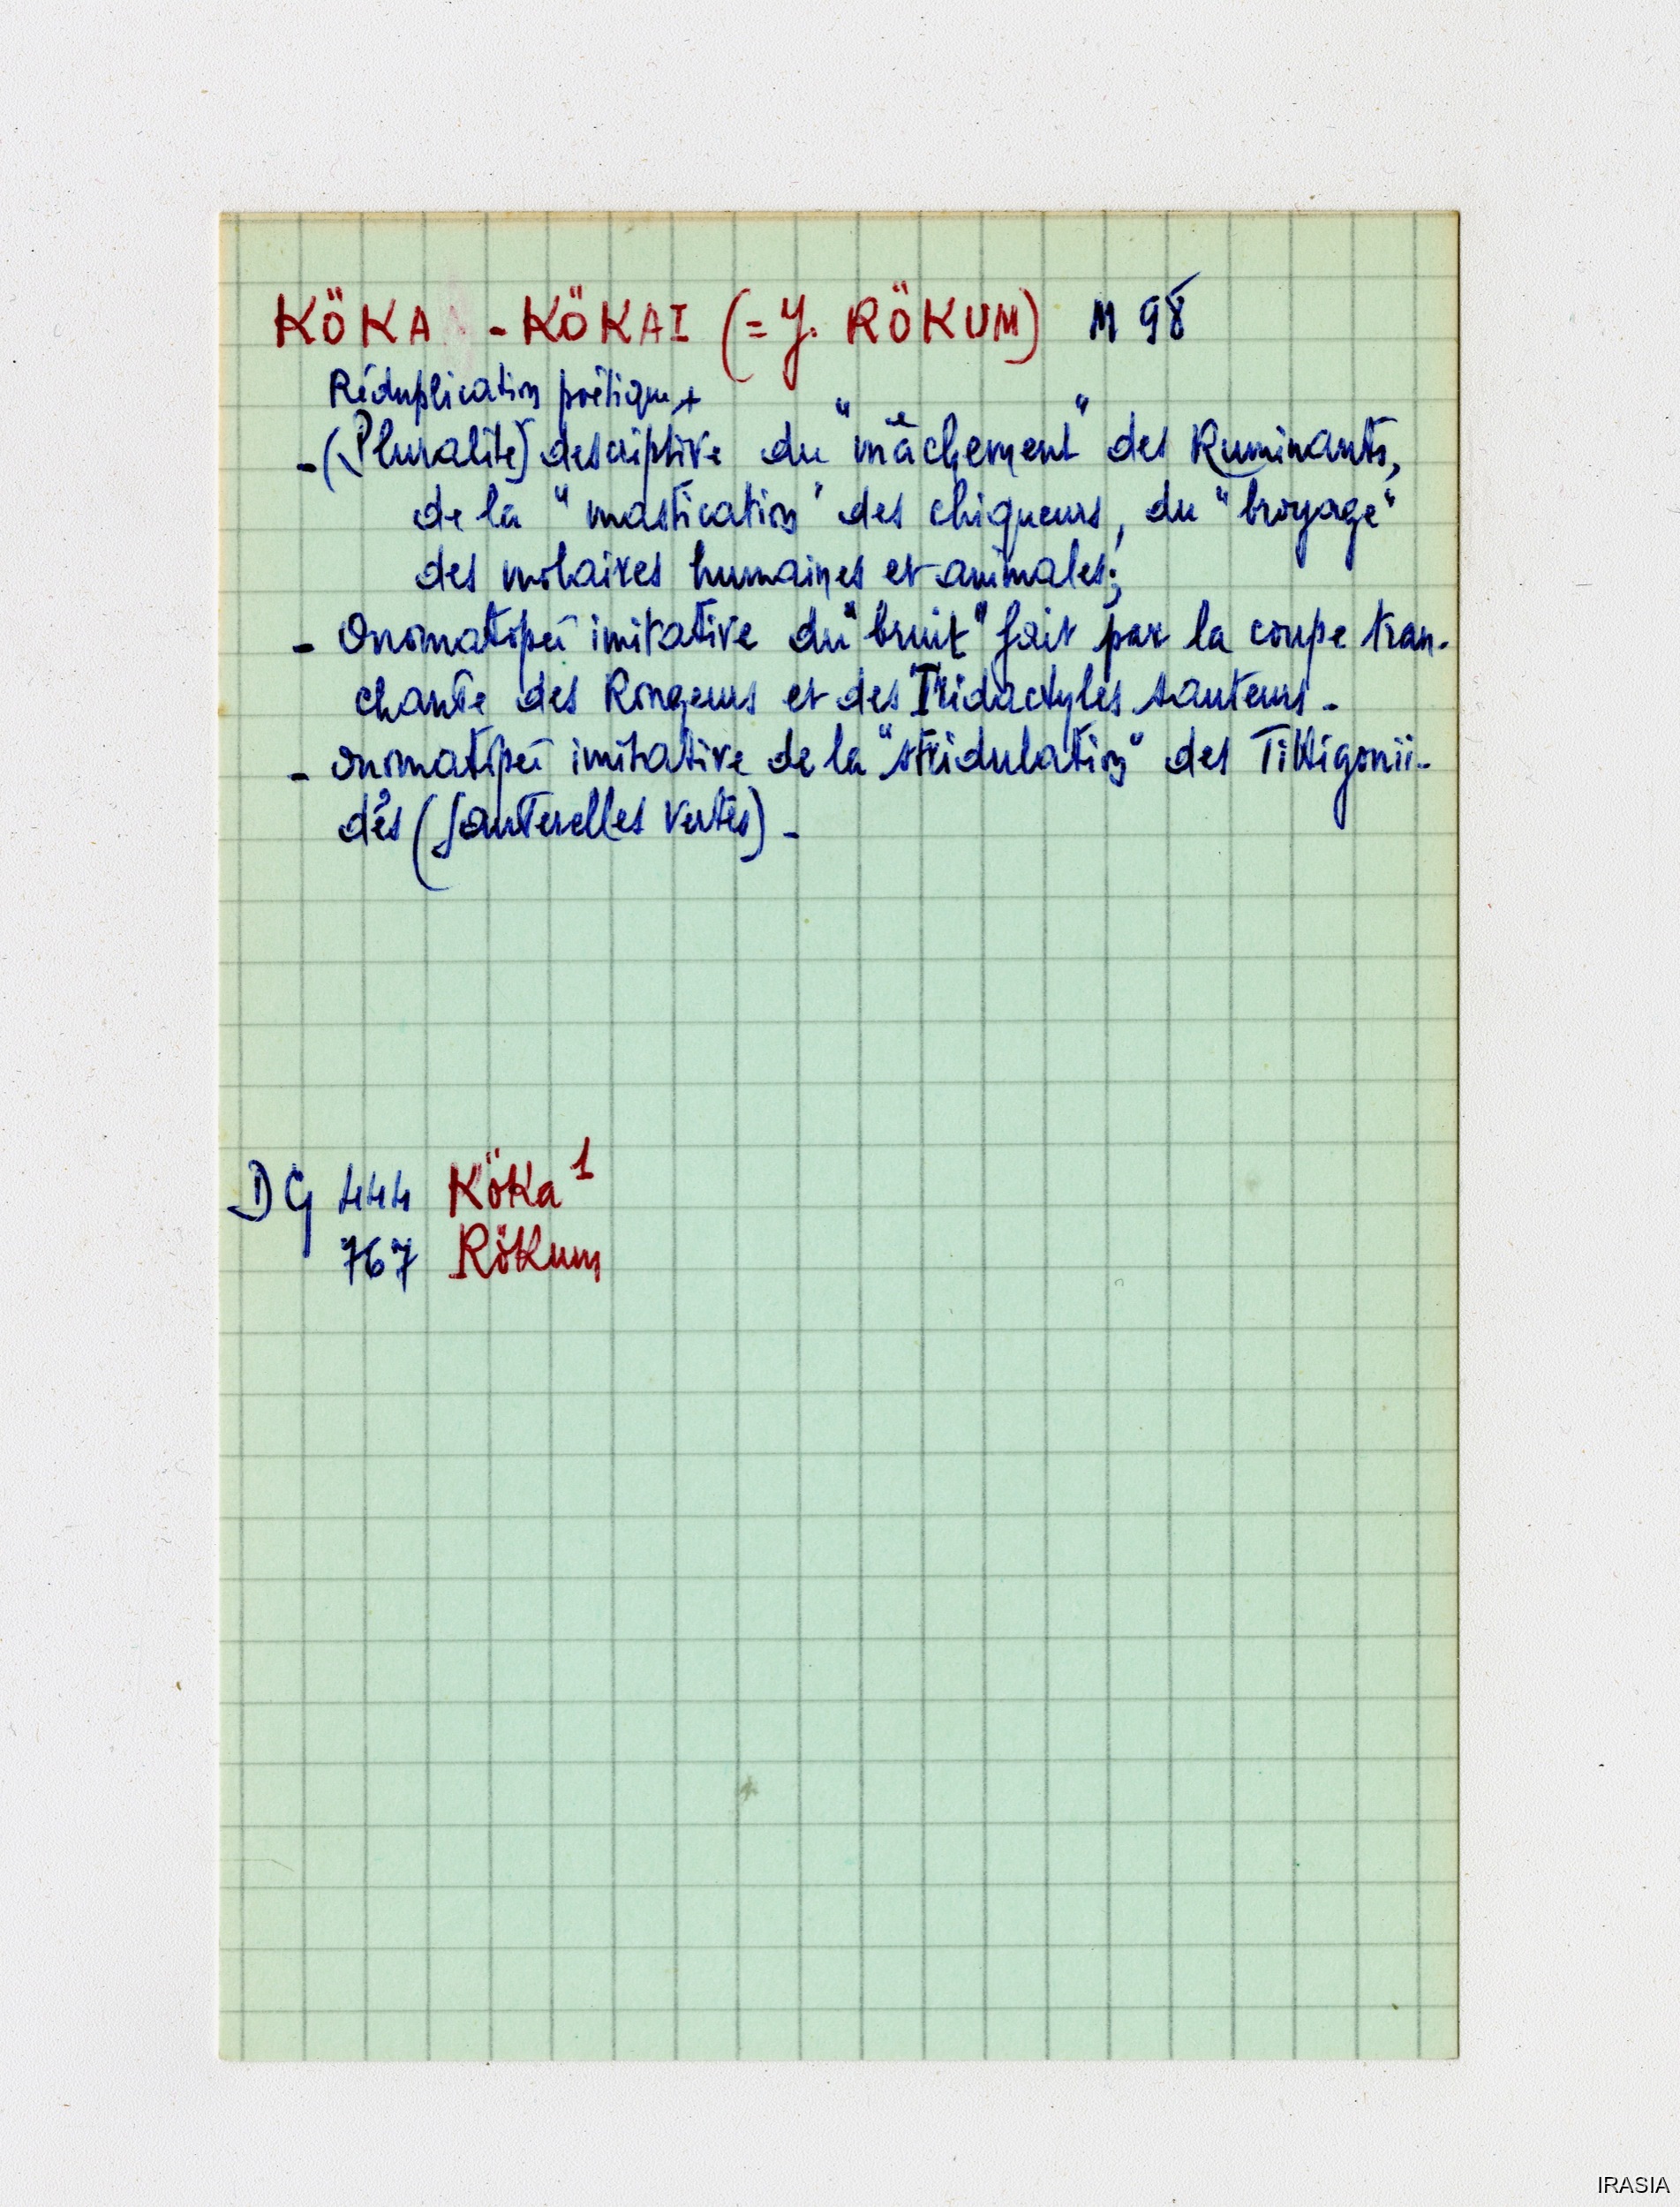 KÖKA - KÖKAI (= Y. RÖKUM) M 98
Réduplication poétique +
- (Pluralité) descriptive du "mâchement" des Ruminants,
de la "mastication" des chiqueurs, du "broyage"
des molaires humaines et animales;
- Onomatopée imitative du "bruit" fait par la coupe tran-
chante des Rongeurs et des Tridactyles sauteurs -
- onomatopée imitative de la "stridulation" des Tettigonii-
dés (Sauterelles vertes) -
DG 444 Köka 1
767 Rökum
IRASIA